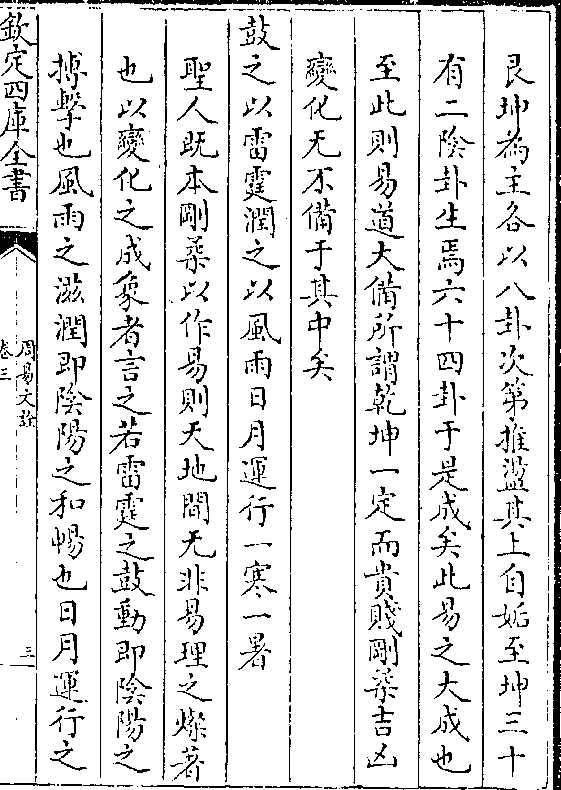 艮坤為主各以八卦次第推盪其上自姤至坤三十
有二陰卦生焉六十四卦于是成矣此易之大成也
至此則易道大備所謂乾坤一定而貴賤剛柔吉凶
變化无不備于其中矣
鼓之以雷霆潤之以風雨日月運行一寒一暑
聖人既本剛柔以作易則天地間无非易理之燦著
也以變化之成象者言之若雷霆之鼓動即陰陽之
搏擊也風雨之滋潤即陰陽之和暢也日月運行之
欽定四庫全書
周易文詮
卷三
三